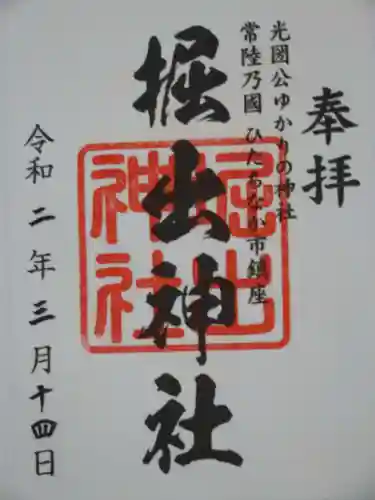 奉拝
光國公ゆかりの神社
常陸乃國 ひたちなか市鎮座
掘出神社
掘出神社
令和二年三月十四日